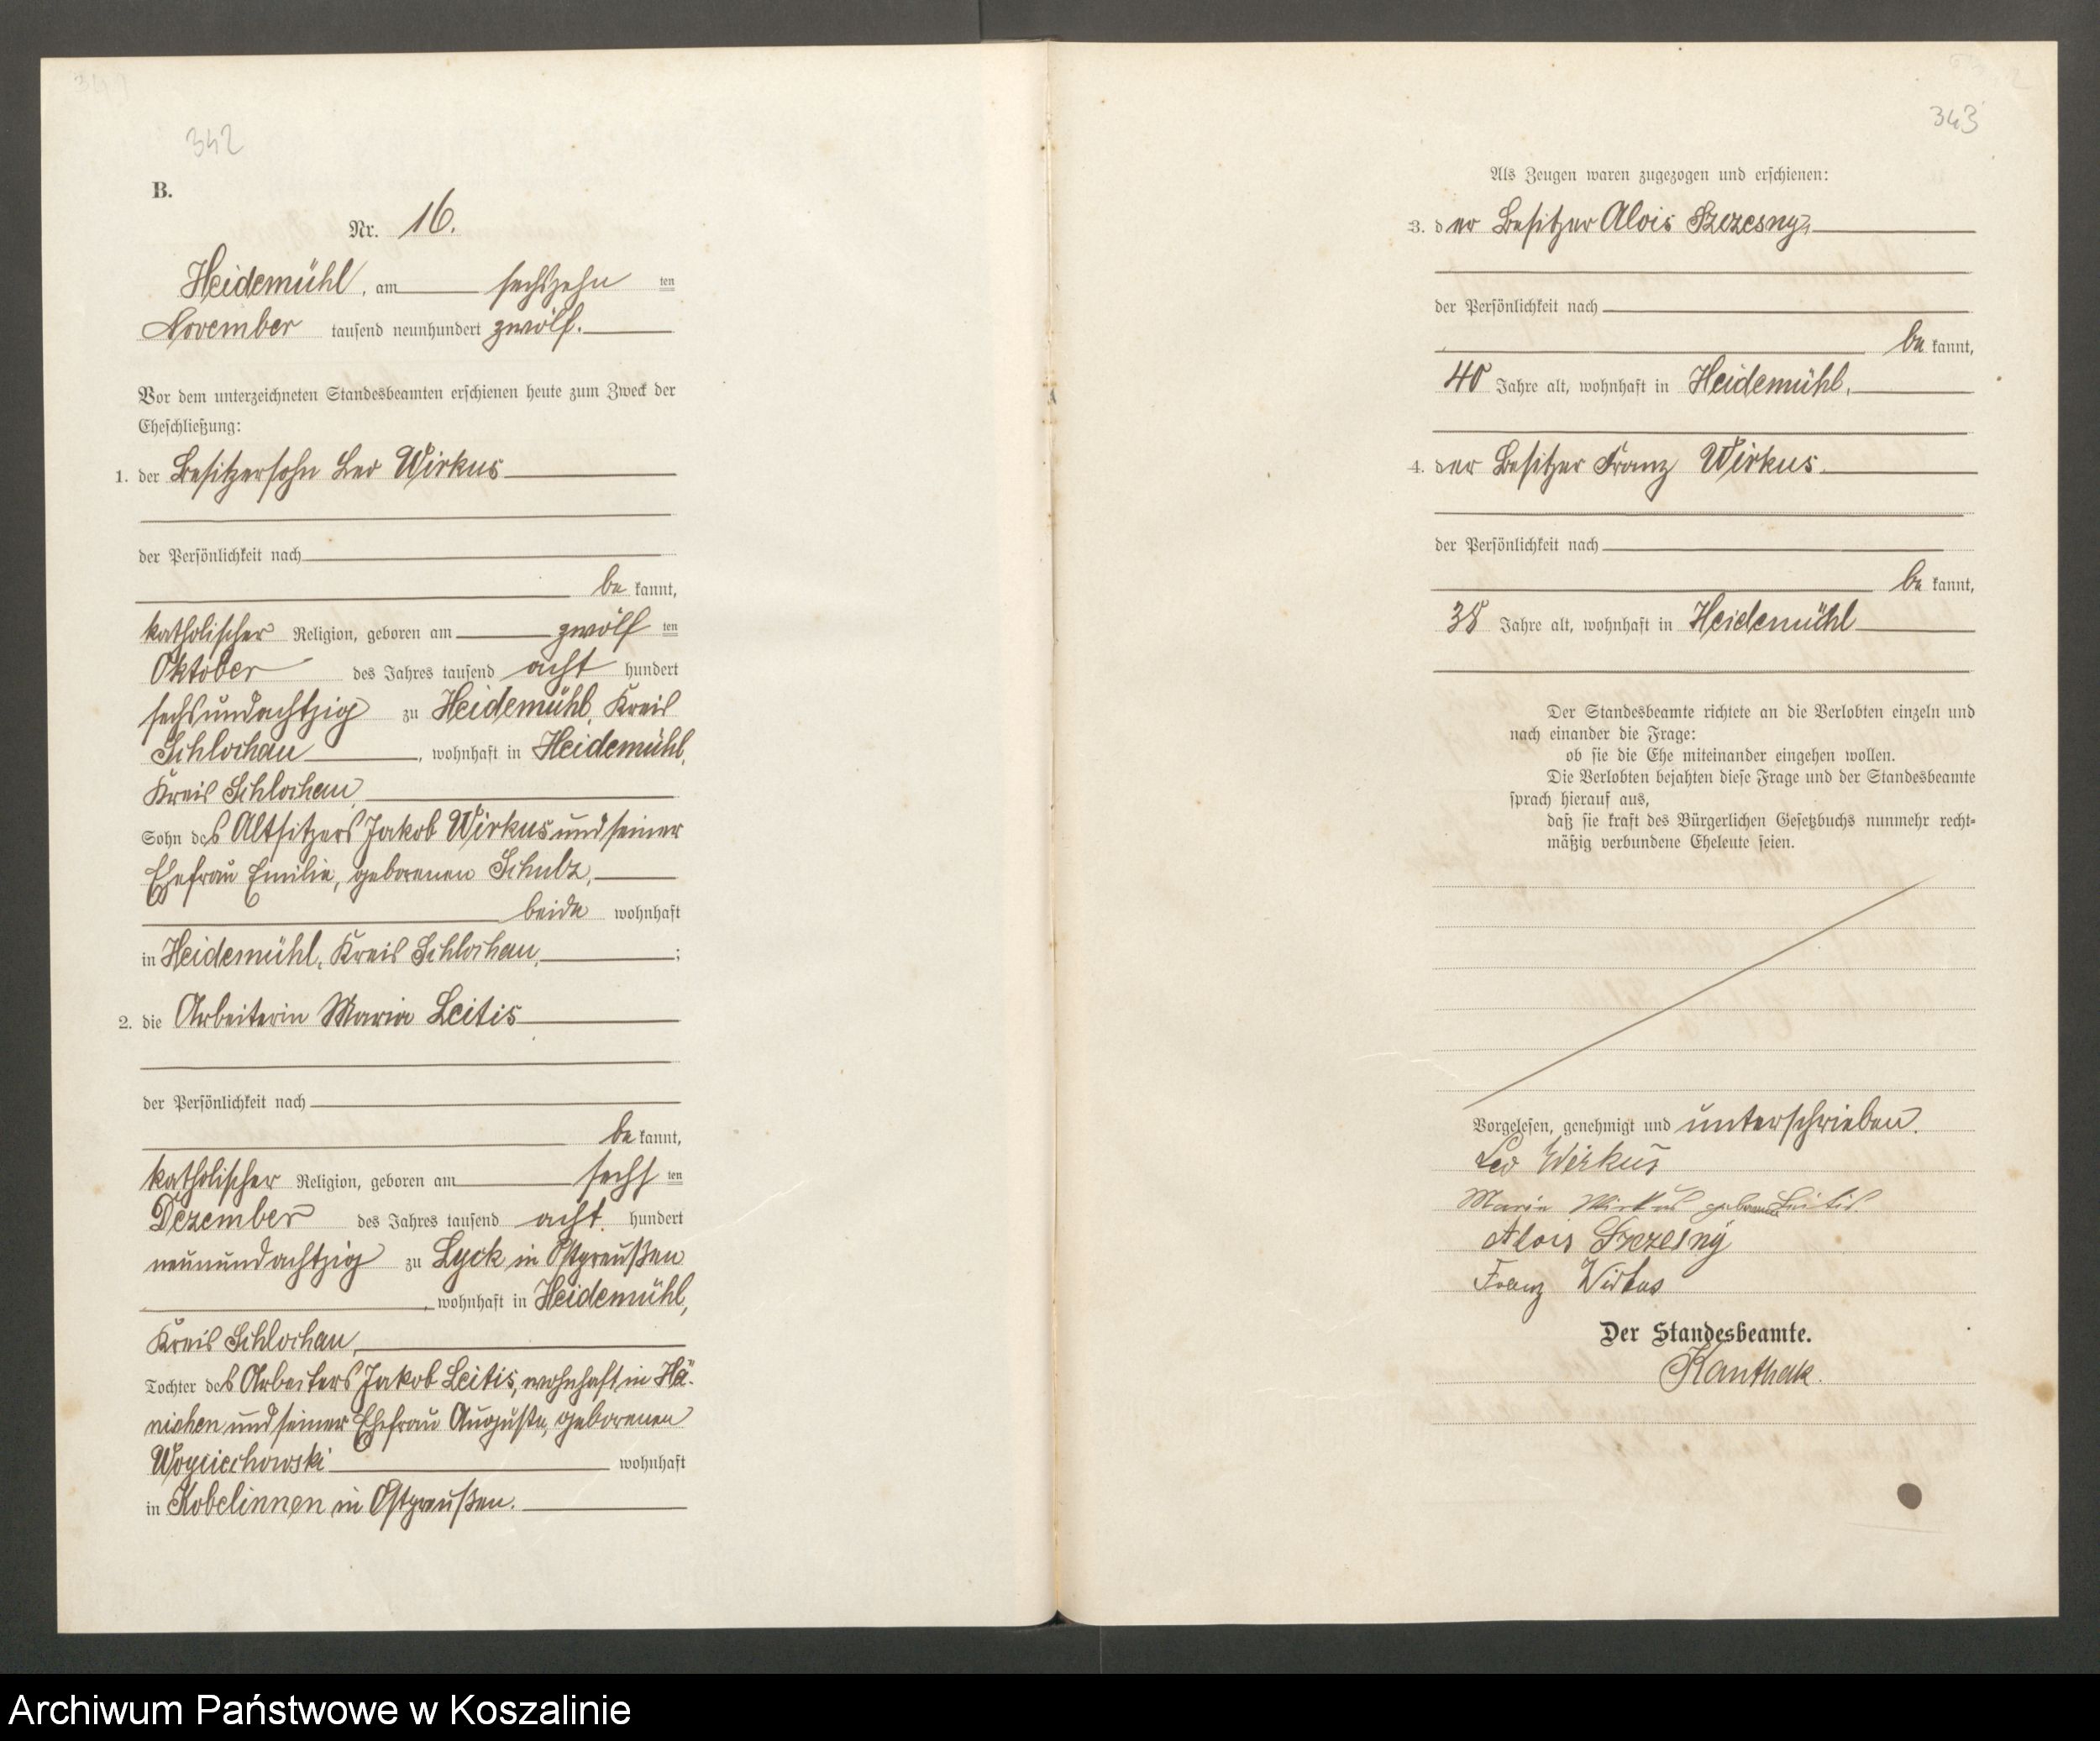 342
B.
Nr. 16.
Heidemühl, am sechszehn ten
November tausend neunhundert zwölf.
Vor dem unterzeichneten Standesbeamten erschienen heute zum Zweck der
Eheschließung:
1. der Besitzersohn Leo Wirkus
der Persönlichkeit nach
be kannt,
katholischer Religion, geboren am zwölf ten
Oktober des Jahres tausend acht hundert
sechsundachtzig zu Heidemühl, Kreis
Schlochau, wohnhaft in Heidemühl,
Kreis Schlochau,
Sohn des Altsitzers Jakob Wirkus und seiner
Ehefrau Emilie, geborenen Schulz,
beide wohnhaft
in Heidemühl, Kreis Schlochau, ;
2. die Arbeiterin Maria Leitis
der Persönlichkeit nach
be kannt,
katholischer Religion, geboren am sechs ten
Dezember des Jahres tausend acht hundert
neunundachtzig zu Lyck in Ostpreußen
, wohnhaft in Heidemühl,
Kreis Schlochau,
Tochter des Arbeiters Jakob Leitis, wohnhaft in Hä-
nichen und seiner Ehefrau Auguste, geborenen
Woyciechowski wohnhaft
in Kobelinnen in Ostpreußen.
343
Als Zeugen waren zugezogen und erschienen:
3. der Besitzer Alois Szczesny,
der Persönlichkeit nach
be kannt,
40 Jahre alt, wohnhaft in Heidemühl,
4. der Besitzer Franz Wirkus
der Persönlichkeit nach
be kannt,
38 Jahre alt, wohnhaft in Heidemühl
Der Standesbeamte richtete an die Verlobten einzeln und
nach einander die Frage:
ob sie die Ehe miteinander eingehen wollen.
Die Verlobten bejahten diese Frage und der Standesbeamte
sprach hierauf aus,
daß sie kraft des Bürgerlichen Gesetzbuchs nunmehr recht-
mäßig verbundene Eheleute seien.
Vorgelesen, genehmigt und unterschrieben.
Leo Wirkus
Maria Wirkus geborene Leitis.
Alois Szczesny
Franz Wirkus
Der Standesbeamte.
Kanthak.
Archiwum Państwowe w Koszalinie